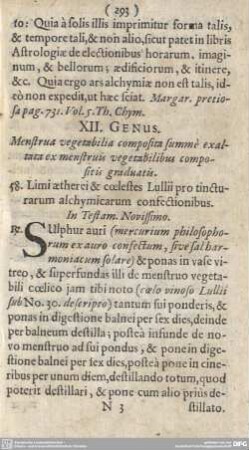 ( 293 )
to: Quia à solis illis imprimitur forma talis,
& tempore tali, & non alio, sicut patet in libris
Astrologiæ de electionibus horarum, imagi-
num, & bellorum; ædificiorum, & itinere,
&c. Quia ergo ars alchymiæ non est talis, id-
eò non expedit, ut hæc sciat. Margar. pretio-
sa pag. 731. Vol. 5. Th. Chym.
XII. GENUS.
Menstrua vegetabilia composita summè exal-
tata ex menstruis vegetabilibus compo-
sitis graduatis.
58. Limi ætherei & cœlestes Lullii pro tinctu-
rarum alchymicarum confectionibus.
In Testam. Novissimo.
℞. SUlphur auri (mercurium philosopho-
rum ex auro confectum, sive sal har-
moniacum solare) & ponas in vase vi-
treo, & superfundas illi de menstruo vegeta-
bili cœlico jam tibi noto (cœlo vinoso Lullii
sub No. 30. descripto) tantum sui ponderis, &
ponas in digestione balnei per sex dies, deinde
per balneum destilla; posteà infunde de no-
vo menstruo ad sui pondus, & pone in dige-
stione balnei per sex dies, posteà pone in cine-
ribus per unum diem, destillando totum, quod
poterit destillari, & pone cum alio priùs de-
N 3 stillato.